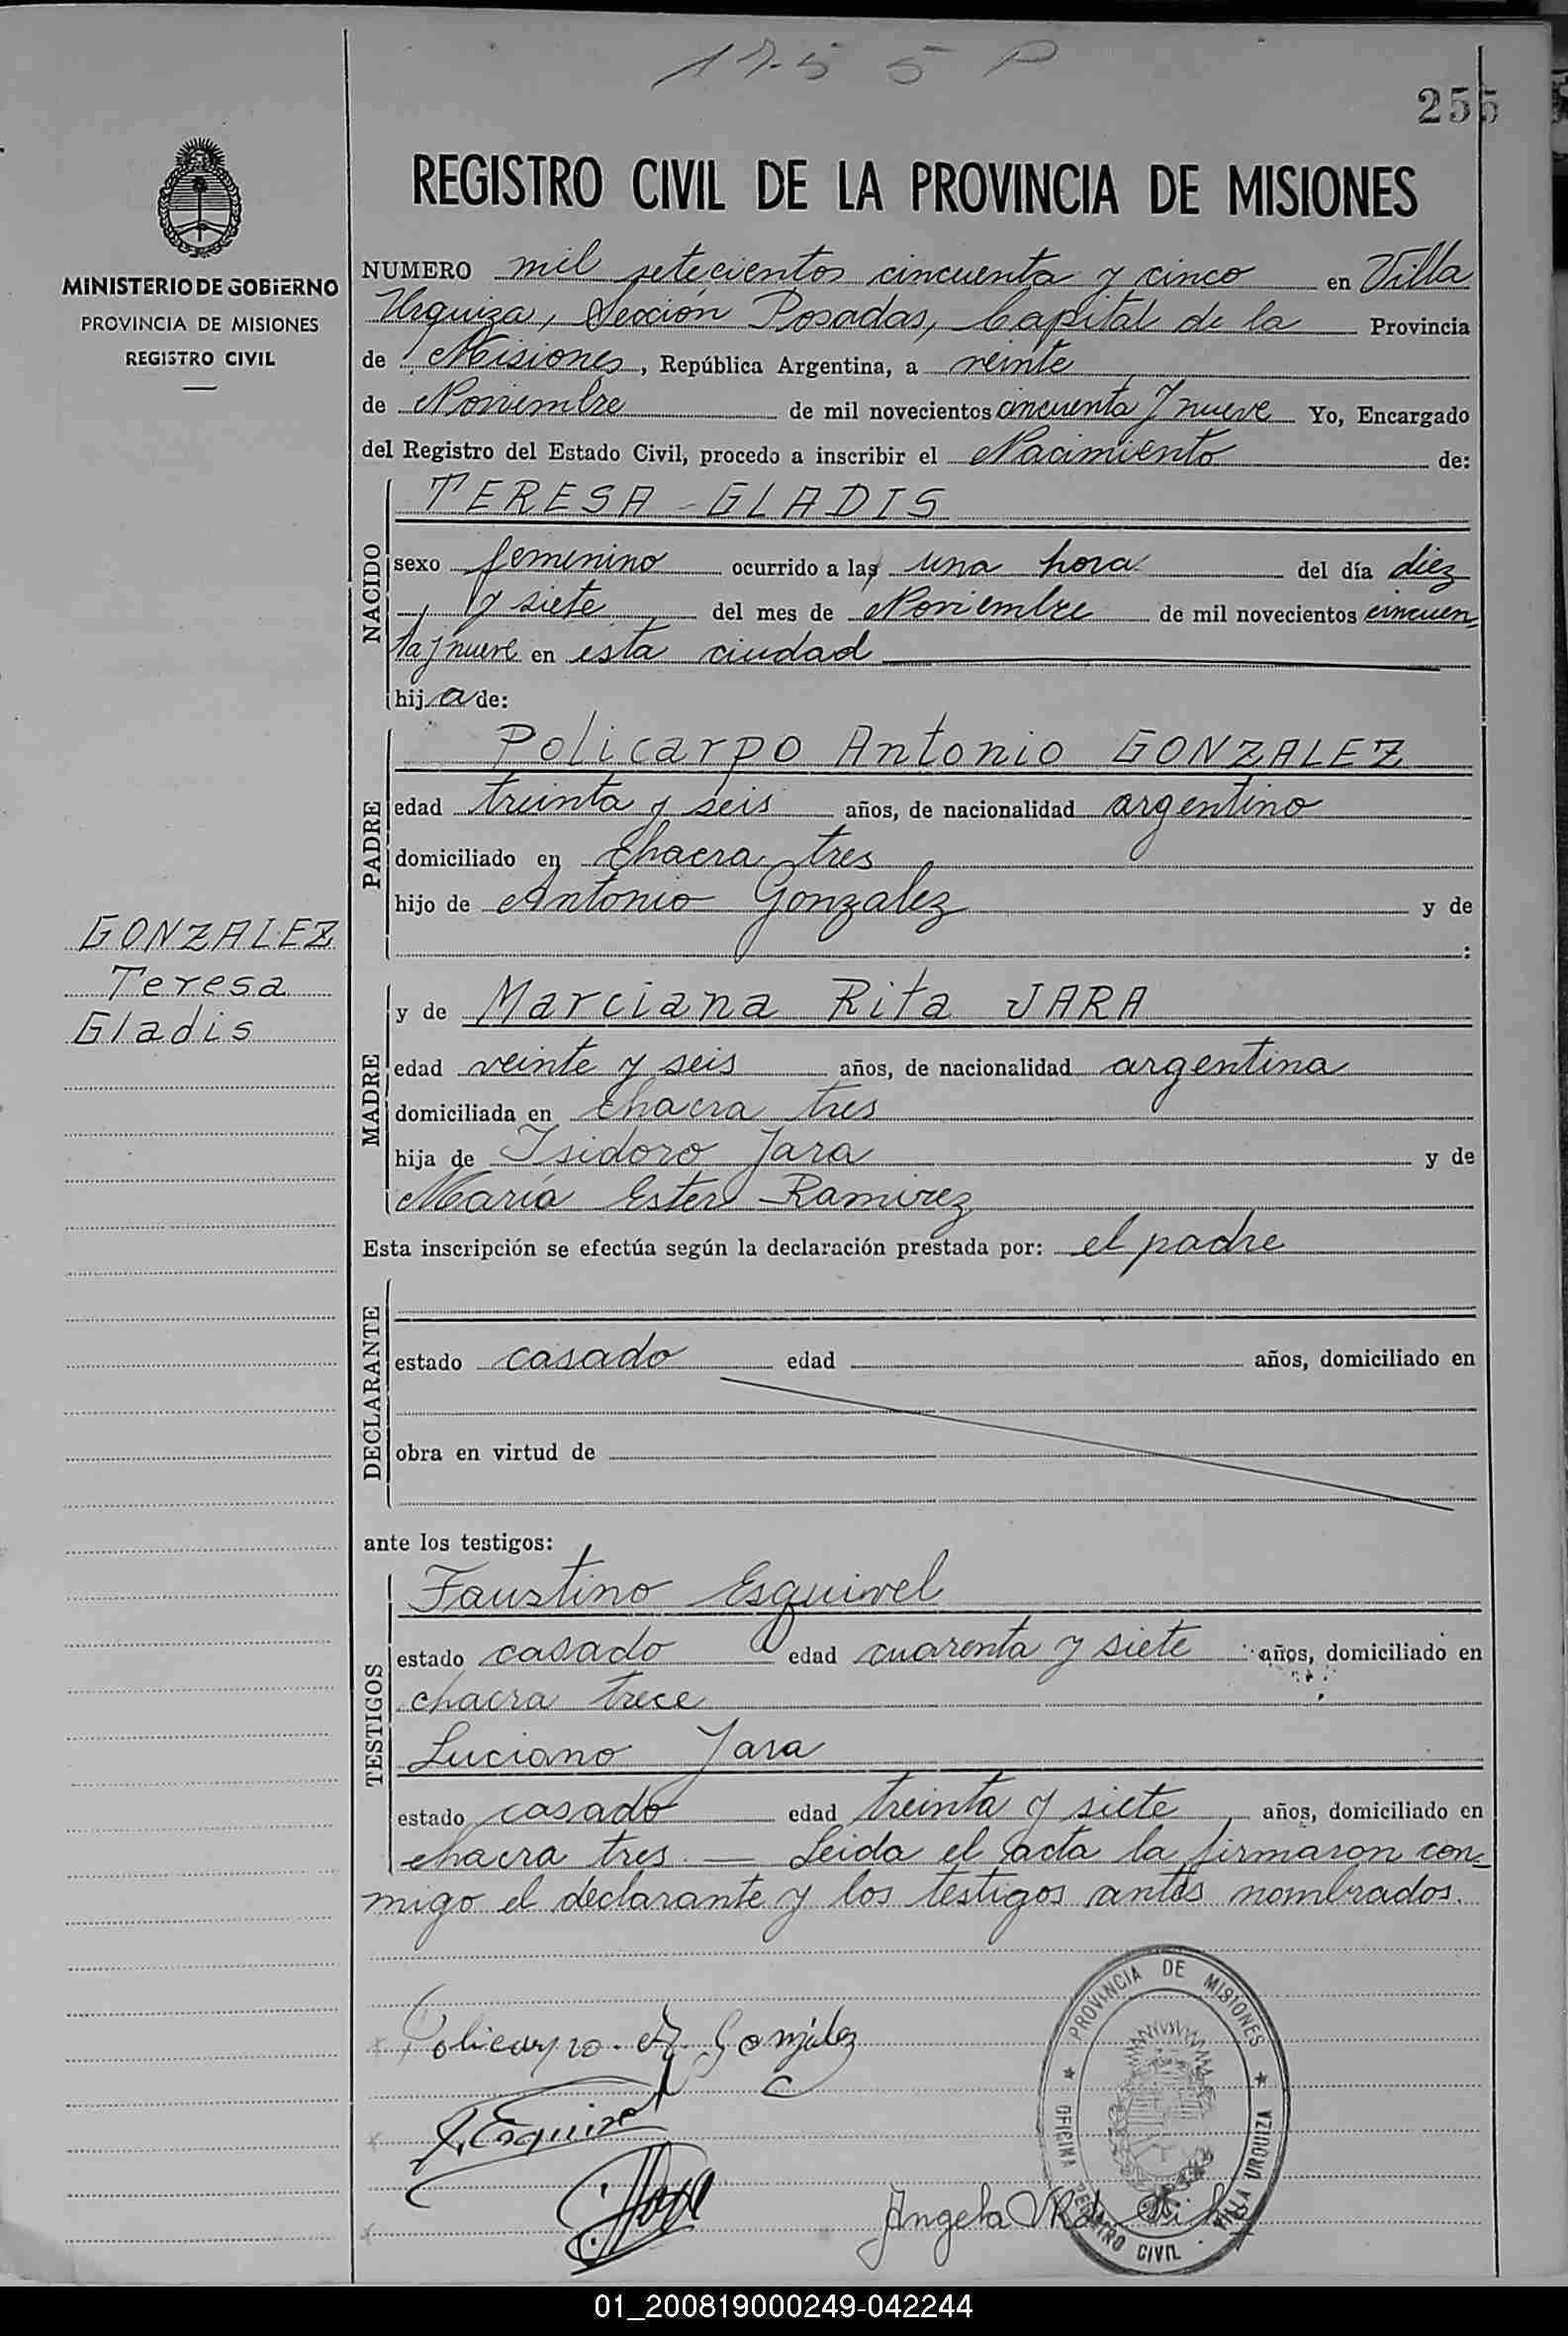 1755 P
255
REGISTRO CIVIL DE LA PROVINCIA DE MISIONES
MINISTERIO DE GOBIERNO
PROVINCIA DE MISIONES
REGISTRO CIVIL
NUMERO mil setecientos cincuenta y cinco en Villa
Urquiza, Sección Posadas, Capital de la Provincia
de Misiones, República Argentina, a veinte
de Noviembre de mil novecientos cincuenta y nueve Yo, Encargado
del Registro del Estado Civil, procedo a inscribir el Nacimiento de:
NACIDO
TERESA - GLADIS
sexo femenino ocurrido a las una hora del día diez
y siete del mes de Noviembre de mil novecientos cincuen-
ta y nueve en esta ciudad
hija de:
PADRE
Policarpo Antonio GONZALEZ
edad treinta y seis años, de nacionalidad argentino
domiciliado en chacra tres
hijo de Antonio Gonzalez y de
:
GONZALEZ
Teresa
Gladis
MADRE
y de Marciana Rita JARA
edad veinte y seis años, de nacionalidad argentina
domiciliada en chacra tres
hija de Isidoro Jara y de
María Ester Ramirez
Esta inscripción se efectúa según la declaración prestada por: el padre
DECLARANTE
estado casado edad años, domiciliado en
obra en virtud de
ante los testigos:
TESTIGOS
Faustino Esquivel
estado casado edad cuarenta y siete años, domiciliado en
chacra trece
Luciano Jara
estado casado edad treinta y siete años, domiciliado en
chacra tres. — Leida el acta la firmaron con-
migo el declarante y los testigos antes nombrados.
Policarpo. A. González
F. Esquivel
Jara
Angela
PROVINCIA DE MISIONES
OFICINA REGISTRO CIVIL - VILLA URQUIZA
01_200819000249-042244